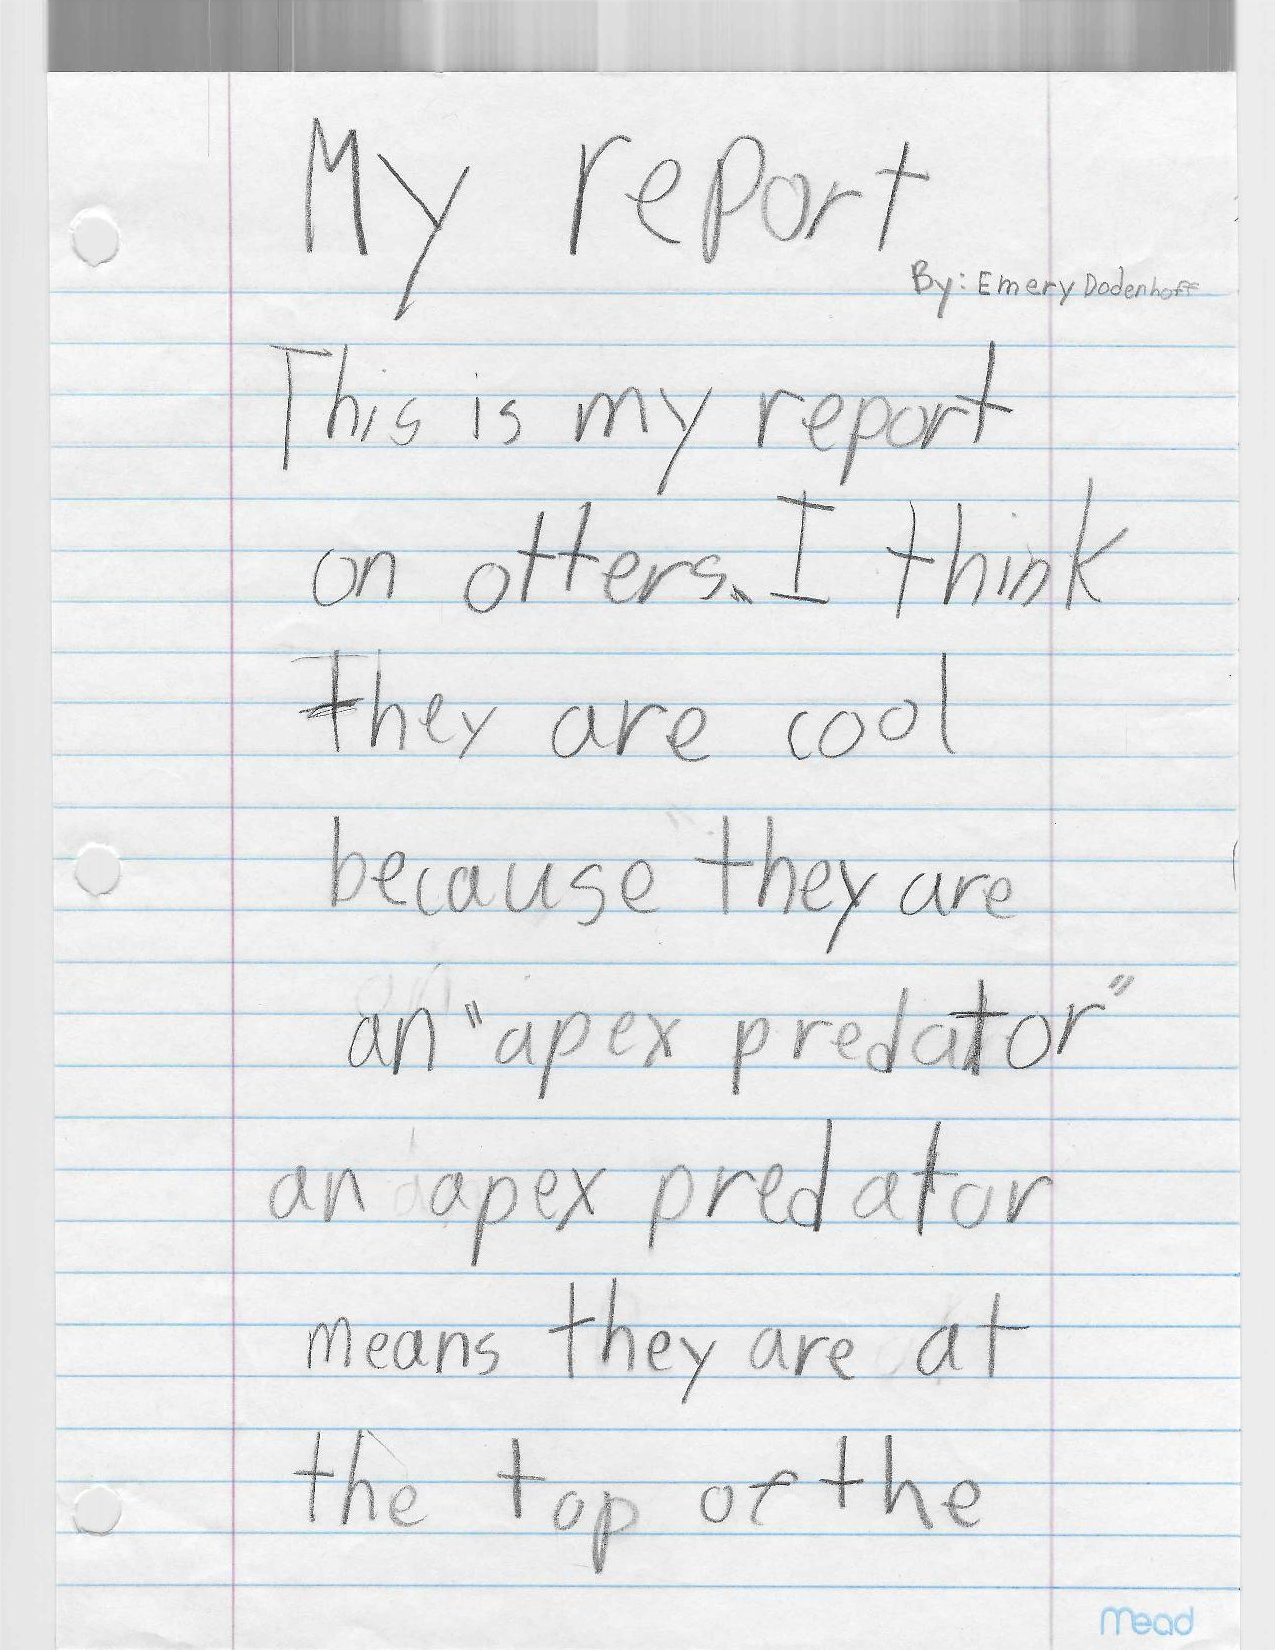 My report
By: Emery Dodenhoff
This is my report
on otters. I think
they are cool
because they are
an "apex predator"
an apex predator
means they are at
the top of the
Mead